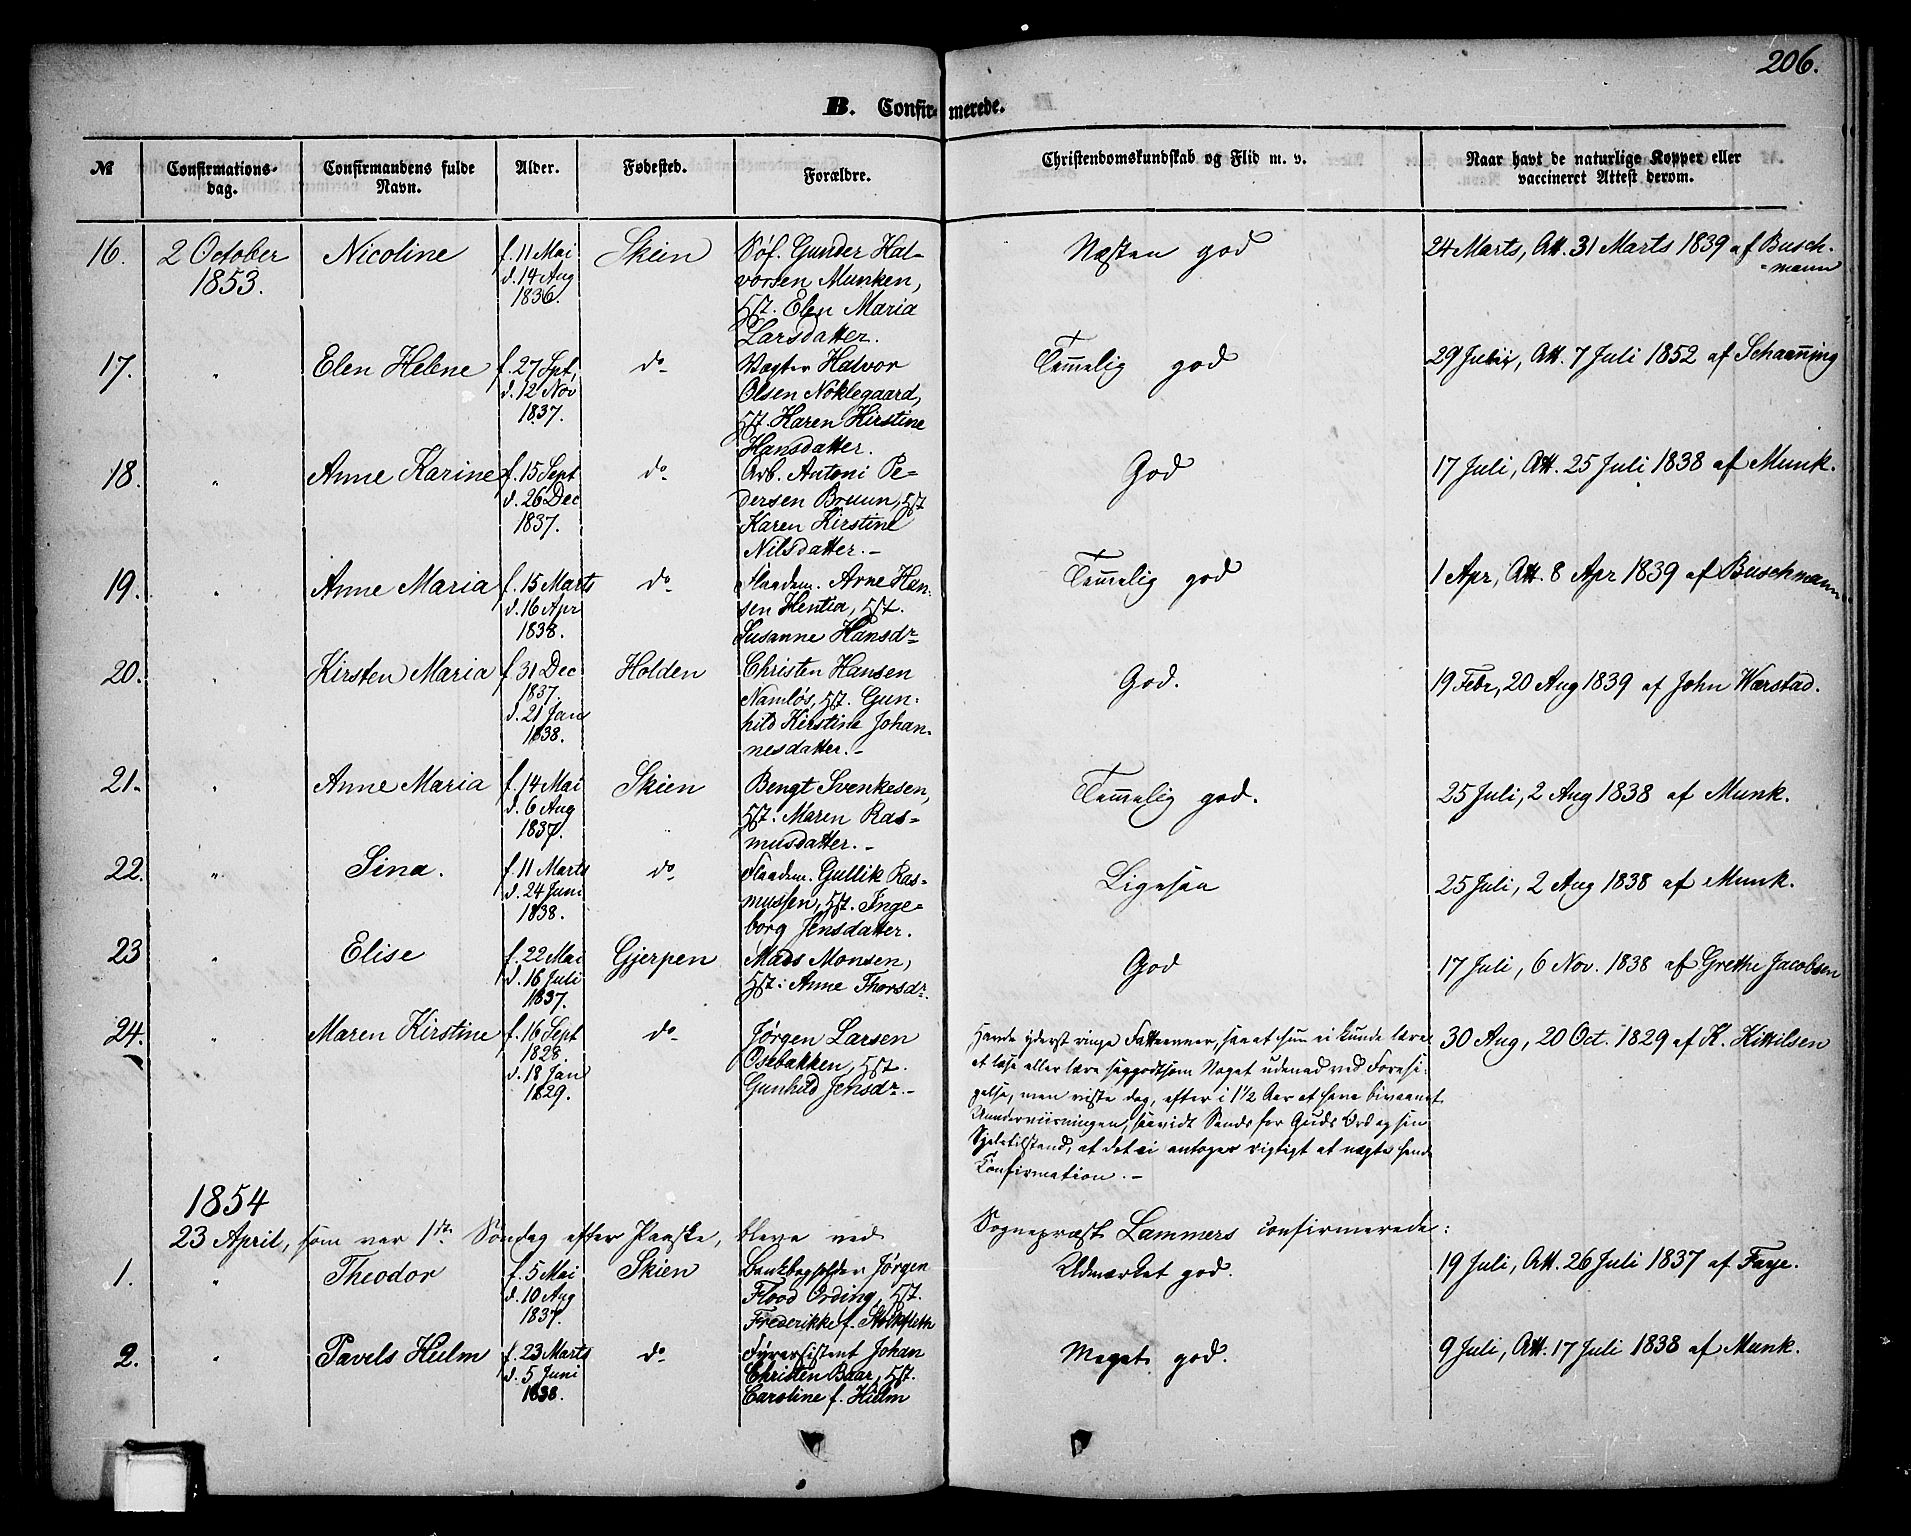 206.
B. Confirmerede.
№ Confirmations-dag. Confirmandens fulde Navn. Alder. Fødested. Forældre. Christendomskundskab og Flid m. v. Naar havt de naturlige Kopper eller vaccineret Attest derom.
16. 2 October Nicoline f. 11 Mai Skien Søf. Gunder Hal- Næsten god 24 Marts, Att. 31 Marts 1839 af Busch-
1853. d. 14 Aug vorsen Munken, =mann
1836. Hst. Elen Maria
Larsdatter.
17. " Elen Helene f. 27 Spt, do Vægter Halvor Temelig god 29 Juni, Att. 7 Juli 1852 af Schanning
d. 12 Nov Olsen Noklegaard,
1837. Hst. Karen Kirstine
Hansdatter.
18. " Anne Karine f. 15 Sept do Arb. Antoni Pe- God 17 Juli, Att. 25 Juli 1838 af Munk.
d. 26 Dec dersen Bruun, Hst
1837. Karen Kirstine
Nilsdatter.-
19. " Anne Maria f. 15 Marts do Flaadm. Arne Han- Temelig god 1 Apr, Att. 8 Apr 1839 af Buschmann
d. 16 Apr sen Hentia, Hst.
1838. Susanne Hansdr
20. " Kirsten Maria f. 31 Dec Holden Christen Hansen God. 19 Febr, 20 Aug 1839 af John Wærstad.
1837. Namløs, Hst. Gun-
d. 21 Jan hild Kirstine Johan-
1838. nesdatter.-
21. " Anne Maria f. 14 Mai Skien Bengt Svenkesen, Temelig god. 25 Juli, 2 Aug 1838 af Munk.
d. 6 Aug Hst. Maren Ras-
1837. musdatter.-
22. " Sina. f. 11 Marts do Flaadm. Gullik Ras- Ligesaa 25 Juli, 2 Aug 1838 af Munk.
d. 24 Juni mussen, Hst. Inge-
1838. borg Jensdatter.
23 " Elise f. 22 Mai Gjerpen Mads Monsen, God 17 Juli, 6 Nov. 1838 af Grethe Jacobsen
d. 16 Juli Hst. Anne Thorsdr.
1837.
24. " Maren Kirstine f. 16 Sept do Jørgen Larsen Havde yderst ringe Fatteevner, saa at hun ei kunde lære 30 Aug, 20 Oct. 1829 af K. Kittilsen
1828. Osebakken, Hst. at læse eller lære saagodtsom Noget udenad ved Foresi-
d. 18 Jan Gunhild Jensdr.- gelse, men viste dog, efter i 1½ Aar at have bivaanet
1829. Underviisningen, saavidt Sands for Guds Ord og sin
Sjæletilstand, at det ei antoges rigtigt at nægte hende
Confirmation.-
1854
23 April, som var 1ste Søndag efter Paaske, bleve ved Sognepræst Lammers confirmerede:
1. " Theodor f. 5 Mai Skien Bankbogholder Jørgen Udmærket god. 19 Juli, Att. 26 Juli 1837 af Faye.
d. 10 Aug Flood Ording, Hst.
1837. Frederikke f. Stockfleth
2. " Pavels Hielm f. 23 Marts do Fyrassistent Johan Meget god. 9 Juli, Att. 17 Juli 1838 af Munk.
d. 5 Juni Christen Baar, Hst.
1838. Caroline f. Hielm